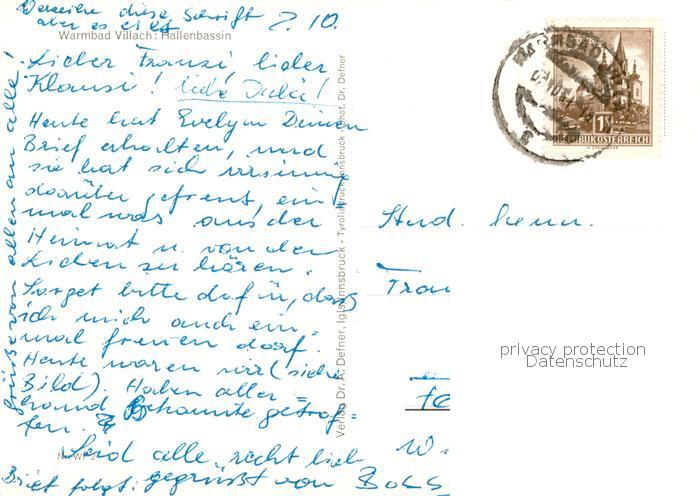 Verzeihe diese Schrift
aber es eilt
2. 10.
Warmbad Villach: Hallenbassin
Lieber Franzi, lieber
Klausi! liebe Julei!
Heute hat Evelyn Deinen
Brief erhalten, und
sie hat sich irrsinnig
darüber gefreut, ein-
mal was aus der
Heimat u. von den
Lieben zu hören.
Sorget bitte dafür, daß
ich mich auch ein-
mal freuen darf.
Heute waren wir (siehe
Bild). Haben aller-
hand Bekannte getrof-
fen.
Seid alle recht lieb
gegrüßt von
Brief folgt.
Grüße von allen an alle!
Verlag Dr. A. Defner, Igls-Innsbruck • Tyroliadruck Innsbruck • Phot. Dr. Defner
1S
REPUBLIK ÖSTERREICH
WARMBAD
Stud. kenn.
privacy protection
Datenschutz